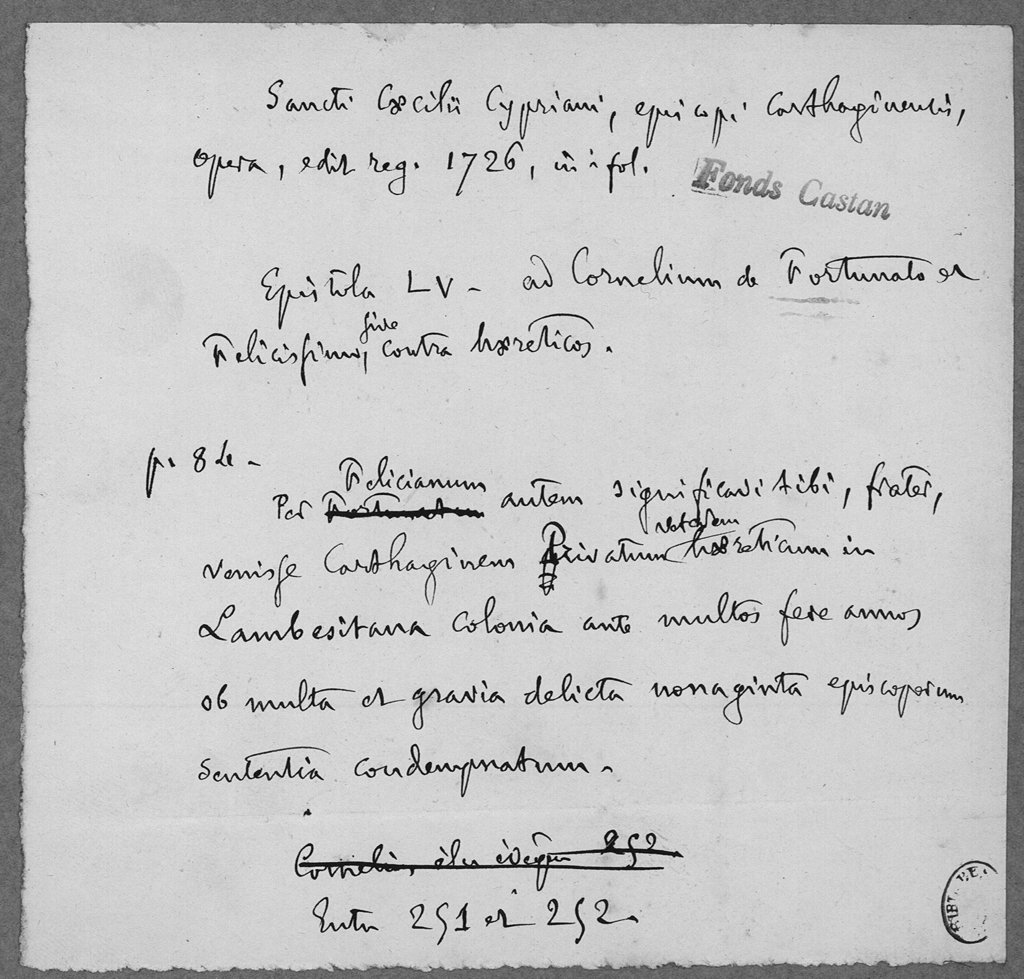 Sancti Cæcilii Cypriani, episcopi Carthaginensis,
opera, edit reg. 1726, in-fol.
Fonds Castan
Epistola LV - ad Cornelium de Fortunato et
Felicissimo, sive contra hæreticos.
p. 84 -
Per Fortunatum Felicianum autem significavi tibi, frater,
venisse Carthaginem Privatum veterem hæreticum in
Lambesitana colonia ante multos fere annos
ob multa et gravia delicta nonaginta episcoporum
sententia condempnatum.
Cornelius, élu évêque 252
Entre 251 et 252.